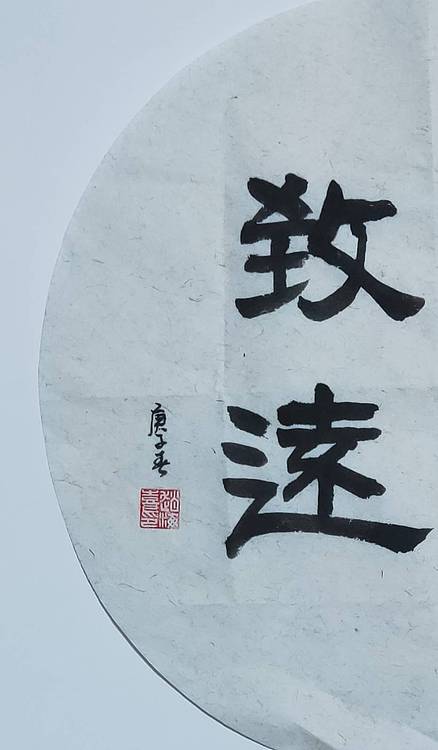 致遠
庚子春